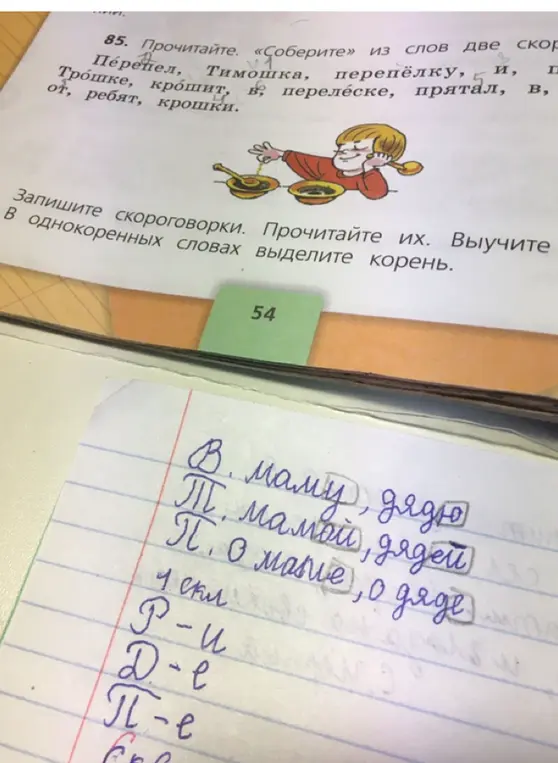 85. Прочитайте. «Соберите» из слов две
Перепел, Тимошка, перепёлку, и,
Трошке, крошит, в, перелеске, прятал, в,
от, ребят, крошки.
Запишите скороговорки. Прочитайте их. Выучите
В однокоренных словах выделите корень.
54
В. маму, дядю
Т. мамой, дядей
П. о маме, о дяде
1 скл
Р - и
Д - е
П - е